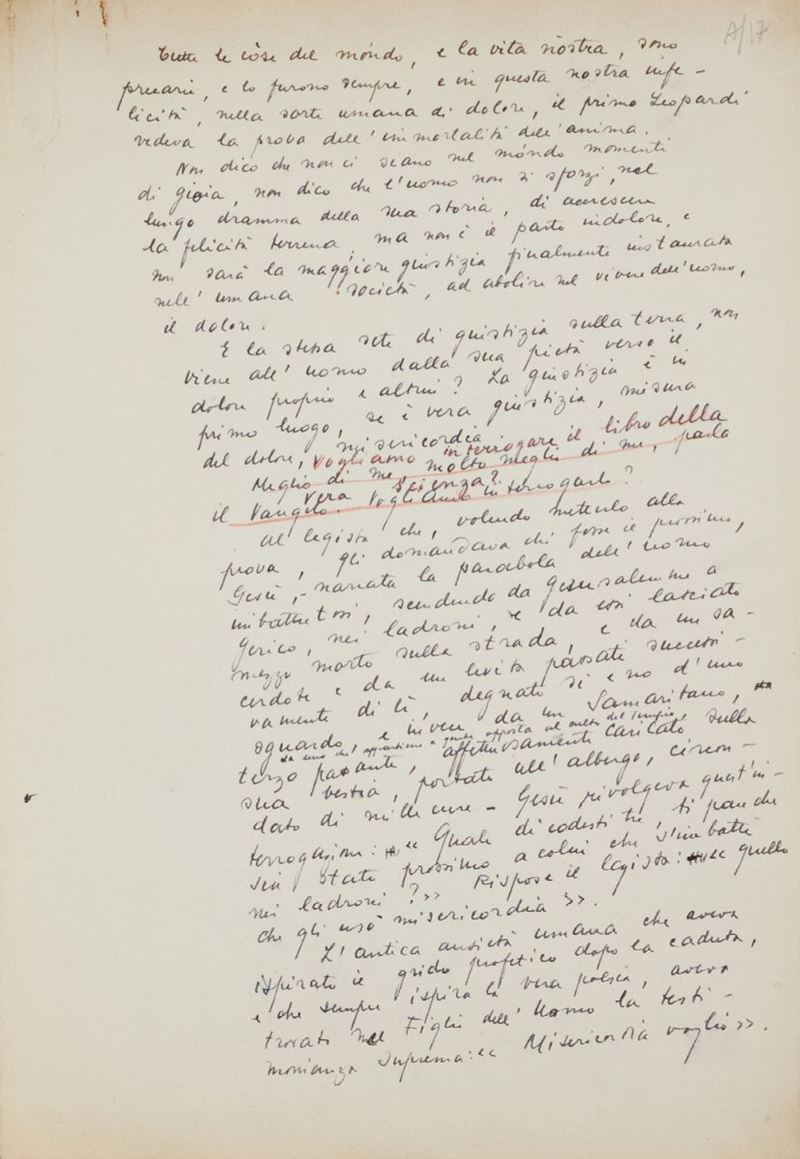 A/17
Tutte le cose del mondo, e la vita nostra, sono
precarie, e lo furono sempre, e in questa nostra infe-
licità, nella sorte umana di dolore, il primo Leopardi
vedeva la prova dell'immortalità dell'anima.
Non dico che non ci siano nel mondo momenti
di gioia, non dico che l'uomo non si sforzi, nel
lungo dramma della sua storia, di accrescere
la felicità terrena, ma non è il parto indolore, e
non sarà la maggiore giustizia finalmente instaurata
nell'umana società, ad abolire nel vivere dell'uomo,
il dolore.
E la stessa sete di giustizia sulla terra, non
viene all'uomo dalla sua pietà verso il
dolore proprio e altrui? La giustizia è in
primo luogo, se è vera giustizia, misura
del dolore, misericordia
Vogliamo interrogare il libro della
vera scienza?
Meglio di me, molto meglio di me, parla
il Vangelo. Vogliamo interrogarlo?
Al legista che, volendo metterlo alla
prova, gli domandava chi fosse il prossimo,
Gesù, narrata la parabola dell'uomo
imbattutosi, scendendo da Gerusalemme a
Gerico, nei ladroni, e da essi lasciato
mezzo morto sulla strada, e da un sa-
cerdote e da un levita passati successi-
vamente di lì, degnato sì e no d'uno
sguardo, e invece da un Samaritano,
da uno che apparteneva a gente opposta al culto del Tempio,
terzo passante, affettuosamente caricato sulla
sua bestia, portato all'albergo, circon-
dato di mille cure - Gesù rivolgeva quest'in-
terrogazione: << Quale di codesti tre, ti pare che
sia stato prossimo a colui che s'imbatté
nei ladroni? >> Rispose il legista: << quello
che gli usò misericordia >>.
L'antica ansietà umana che aveva
ispirato il grido profetico dopo la caduta,
e che sempre ispira la vera poesia, aveva
trovato nel Figlio dell'Uomo la testi-
monianza suprema: << Misericordia voglio >>.